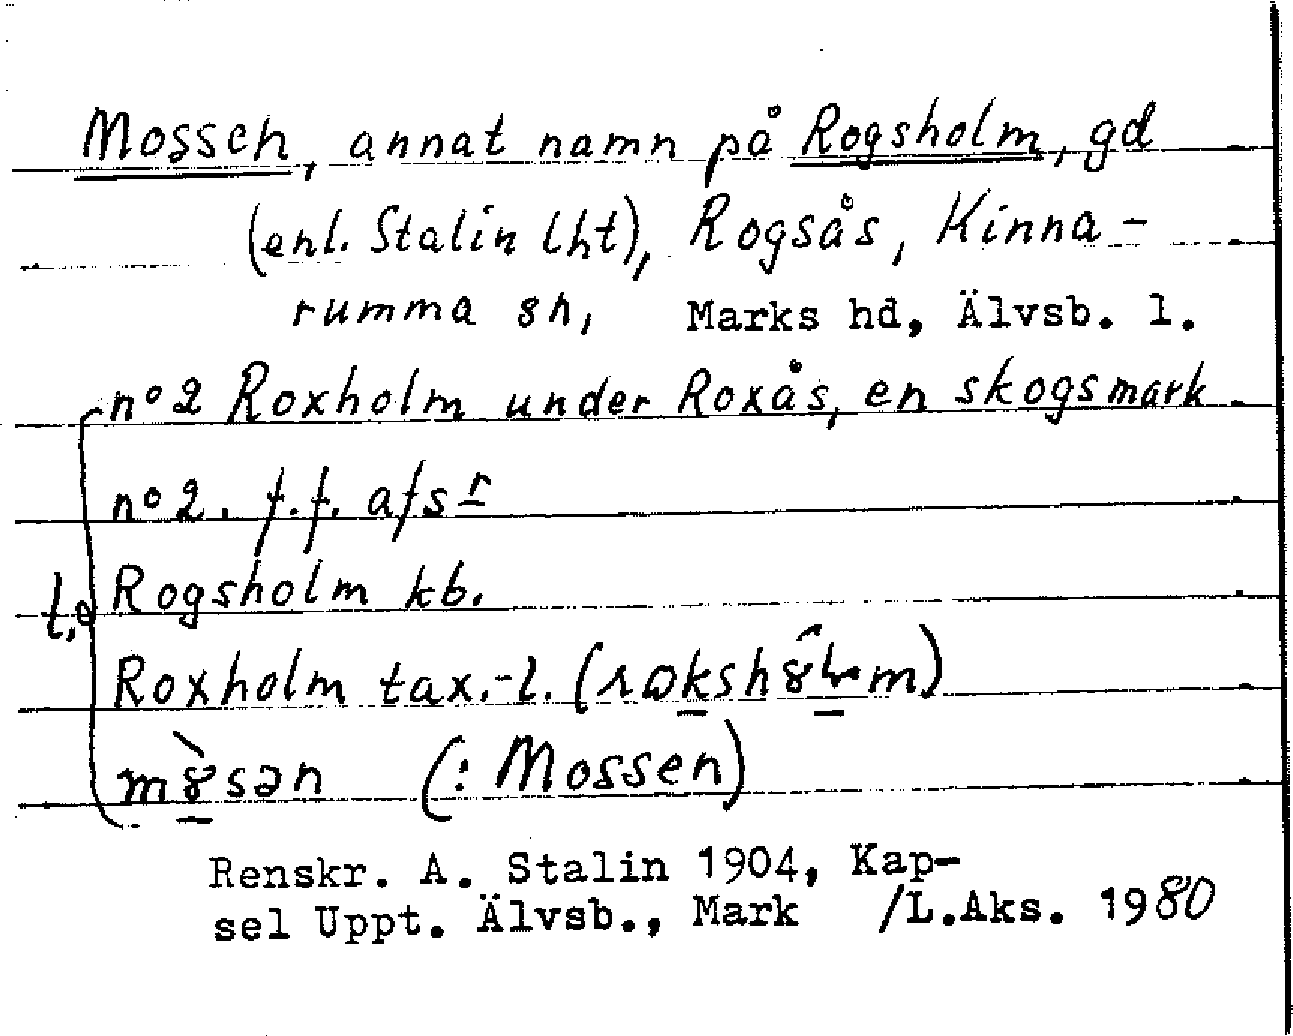 Mossen, annat namn på Rogsholm, gd
(enl. Stalin lht), Rogsås, Kinna-
rumma sn, Marks hd, Älvsb. l.
n° 2 Roxholm under Roxås, en skogsmark
n° 2. f.f. afsr
Rogsholm kb.
Roxholm tax.-l.
mȣ̀sən (: Mossen)
Renskr. A. Stalin 1904, Kap-
sel Uppt. Älvsb., Mark /L.Aks. 1980